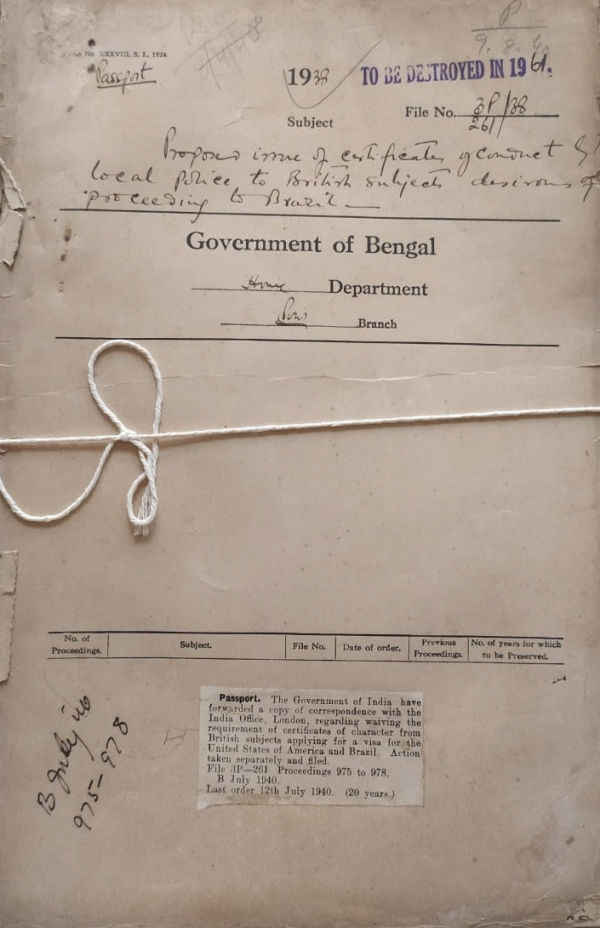 No XXXVIII, S. I., 1924.
Passport
P
9. 8. 40
1938 TO BE DESTROYED IN 1961.
File No. 3P/38
261
Subject
Proposed issue of certificates of conduct by
local police to British subjects desirous of
proceeding to Brazil —
Government of Bengal
Home Department
Branch
No. of Proceedings. Subject. File No. Date of order. Previous Proceedings. No. of years for which to be Preserved.
Passport. The Government of India have
forwarded a copy of correspondence with the
India Office, London, regarding waiving the
requirement of certificates of character from
British subjects applying for a visa for the
United States of America and Brazil. Action
taken separately and filed.
File 3P—261 Proceedings 975 to 978.
B July 1940.
Last order 12th July 1940. (20 years.)
B July '40
975–978